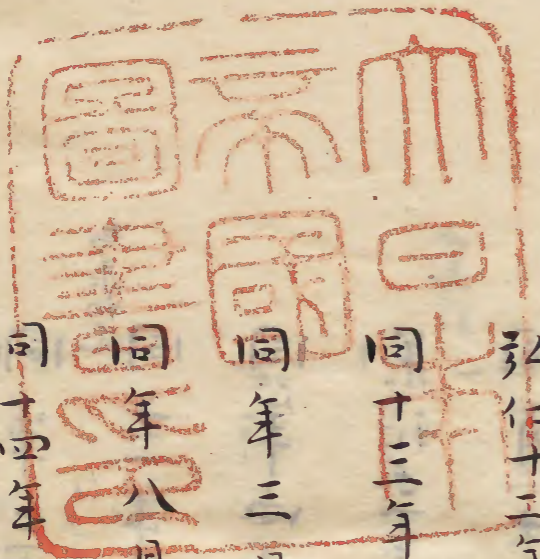 大日本
帝國
圖書印
弘仁十三年
同十三年
同年三
同年八
同十四年